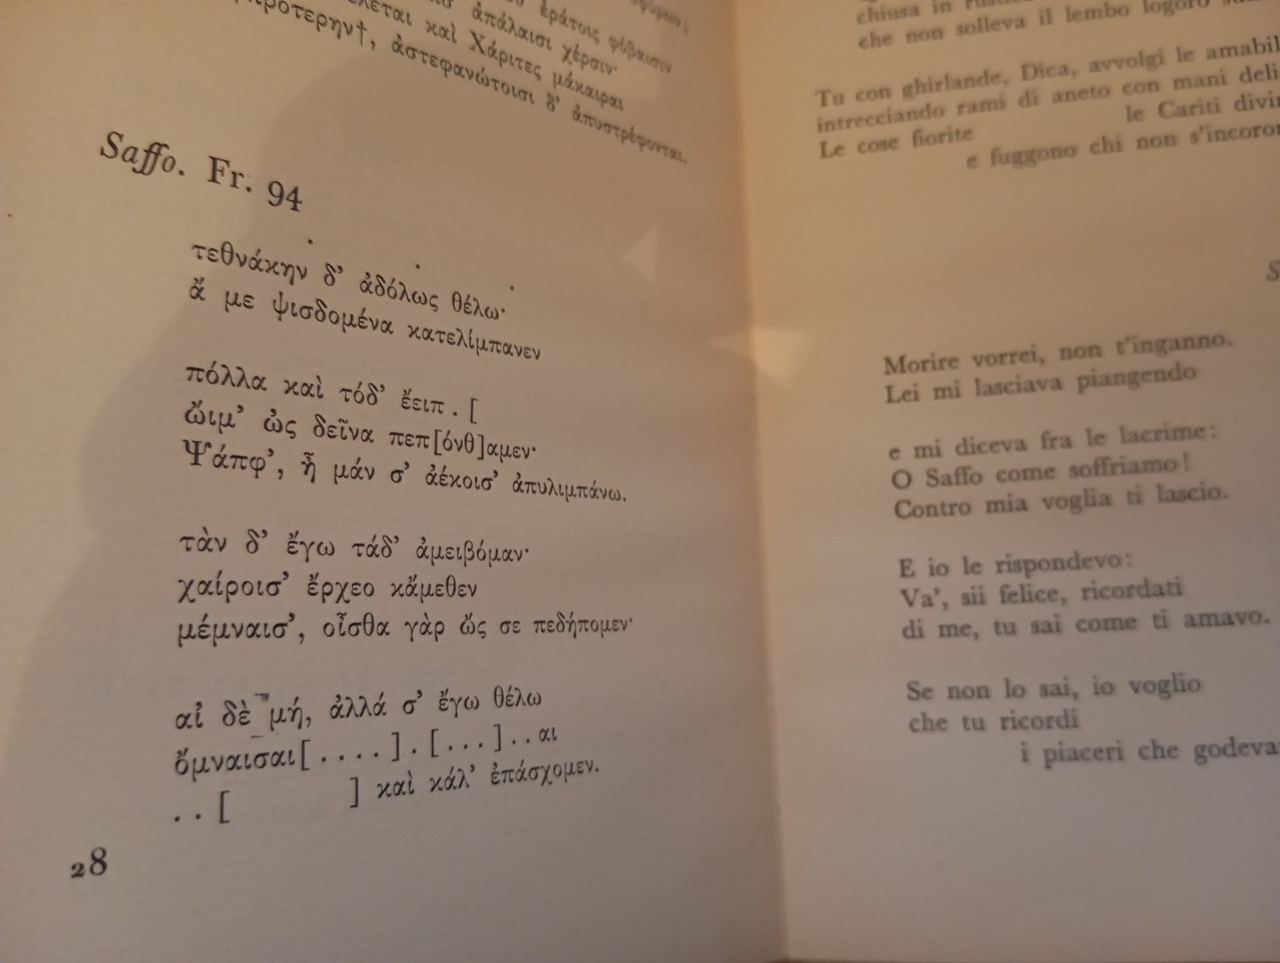 ἐράτοις φόβαισιν
ἀπάλαισι χέρσιν·
καὶ Χάριτες μάκαιραι
προτερην†, ἀστεφανώτοισι δ' ἀπυστρέφονται.
Saffo. Fr. 94
τεθνάκην δ' ἀδόλως θέλω·
ἄ με ψισδομένα κατελίμπανεν
πόλλα καὶ τόδ' ἔειπ . [
ὤιμ' ὠς δεῖνα πεπ[όνθ]αμεν·
Ψάπφ', ἦ μάν σ' ἀέκοισ' ἀπυλιμπάνω.
τὰν δ' ἔγω τάδ' ἀμειβόμαν·
χαίροισ' ἔρχεο κἄμεθεν
μέμναισ', οἶσθα γὰρ ὤς σε πεδήπομεν·
αἰ δὲ μή, ἀλλά σ' ἔγω θέλω
ὄμναισαι[ . . . . ] . [ . . . ] . . αι
. . [ ] καὶ κάλ' ἐπάσχομεν.
28
chiusa in
che non solleva il lembo logoro
Tu con ghirlande, Dica, avvolgi le amabil
intrecciando rami di aneto con mani deli
Le cose fiorite le Cariti divi
e fuggono chi non s'incoro
S
Morire vorrei, non t'inganno.
Lei mi lasciava piangendo
e mi diceva fra le lacrime:
O Saffo come soffriamo!
Contro mia voglia ti lascio.
E io le rispondevo:
Va', sii felice, ricordati
di me, tu sai come ti amavo.
Se non lo sai, io voglio
che tu ricordi
i piaceri che godeva